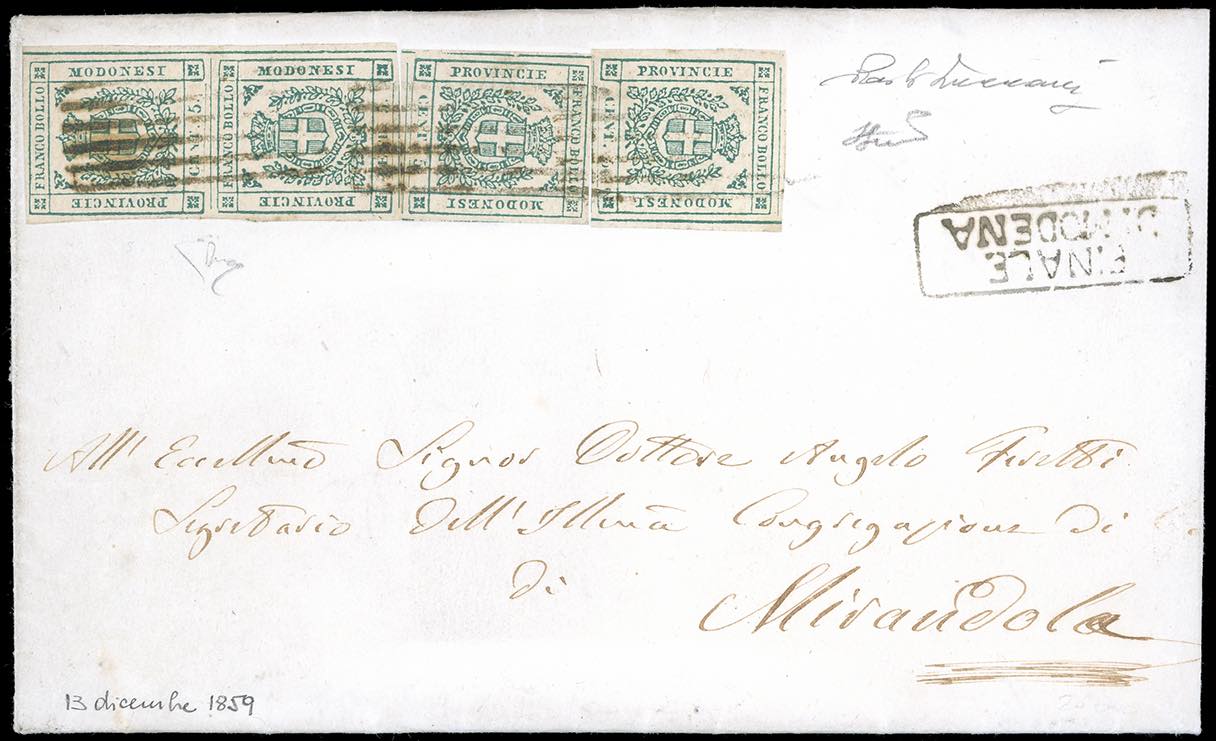 MODONESI
FRANCO BOLLO
CENT. 5.
PROVINCIE
MODONESI
FRANCO BOLLO
PROVINCIE
PROVINCIE
CENT. 5.
FRANCO BOLLO
MODONESI
PROVINCIE
CENT.
FRANCO BOLLO
MODONESI
FINALE
DI MODENA
All' Eccellmo Signor Dottore Angelo
Segretario Dell' Illma Congregazione Di
di
Mirandola
13 dicembre 1859